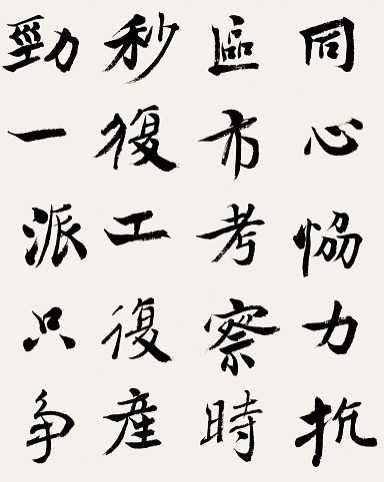 同心恊力抗
區市考察時
秒復工復産
勁一派只争